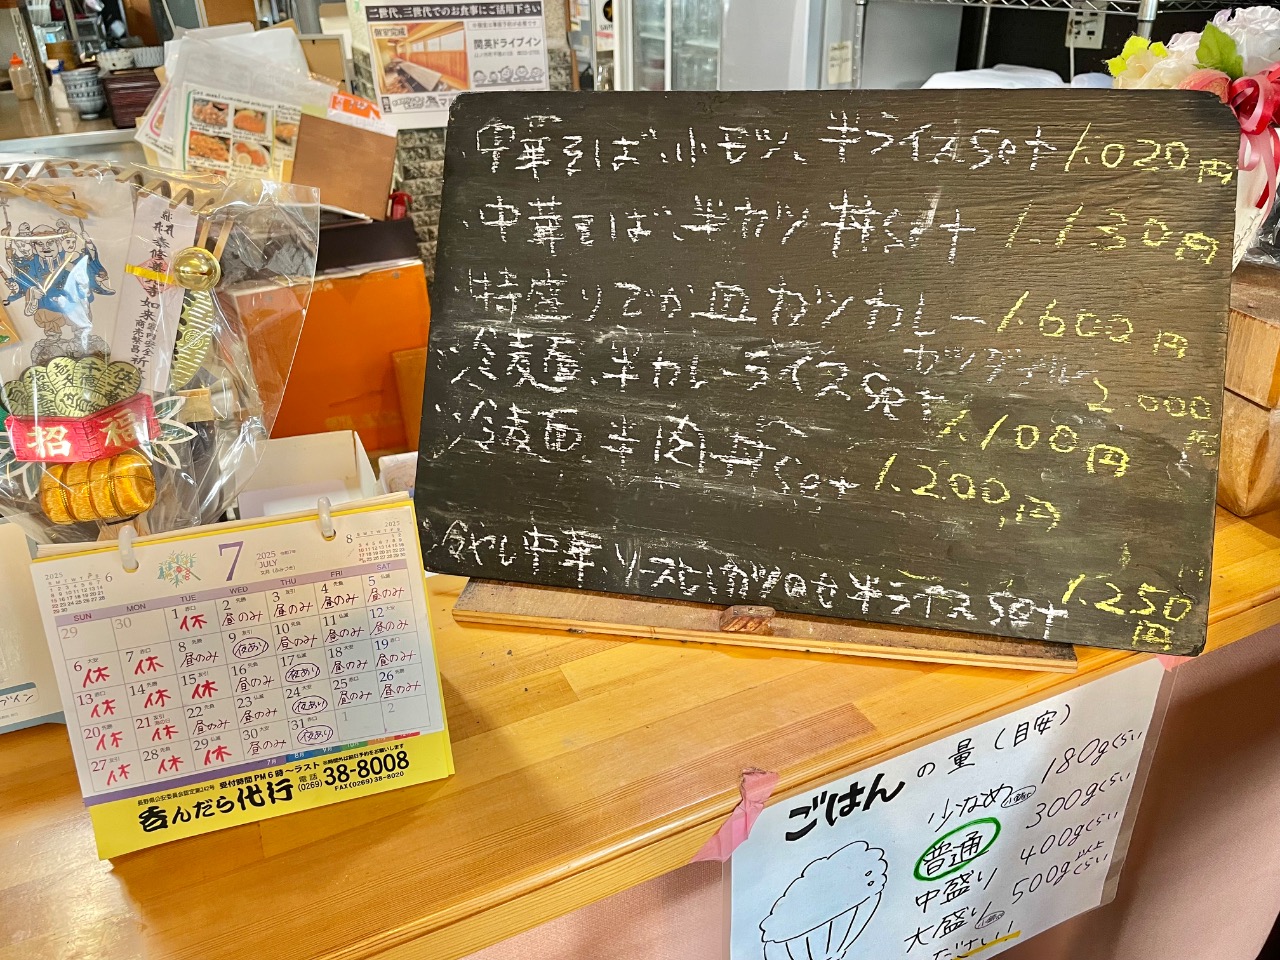 二世代、三世代でのお食事にご活用下さい
個室完成
関英ドライブイン
中華そば、小モツ、半ライスSet 1.020円
中華そば、半カツ丼Set 1.130円
特盛りでか皿カツカレー 1.600円
カツダブル 2.000円
冷麺、半カレーライスSet 1.100円
冷麺、半肉丼Set 1.200円
冷やし中華、半ライスSet 1.250円
招福
家内安全
商売繁昌
2025 6
7
2025 令和7年
JULY
8 2025
SUN MON TUE WED THU FRI SAT
29 30 1 休 2 昼のみ 3 昼のみ 4 昼のみ 5 昼のみ
6 休 7 休 8 昼のみ 9 夜あり 10 昼のみ 11 昼のみ 12 昼のみ
13 休 14 休 15 休 16 昼のみ 17 夜あり 18 昼のみ 19 昼のみ
20 休 21 休 22 昼のみ 23 昼のみ 24 夜あり 25 昼のみ 26 昼のみ
27 休 28 休 29 休 30 昼のみ 31 夜あり 1 2
長野県公安委員会認定第242号 受付時間 PM6時〜ラスト
呑んだら代行 電話 (0269) 38-8008
FAX(0269)38-8020
ごはんの量(目安)
少なめ 180gくらい
普通 300gくらい
中盛り 400gくらい
大盛り 500g以上くらい
ください!